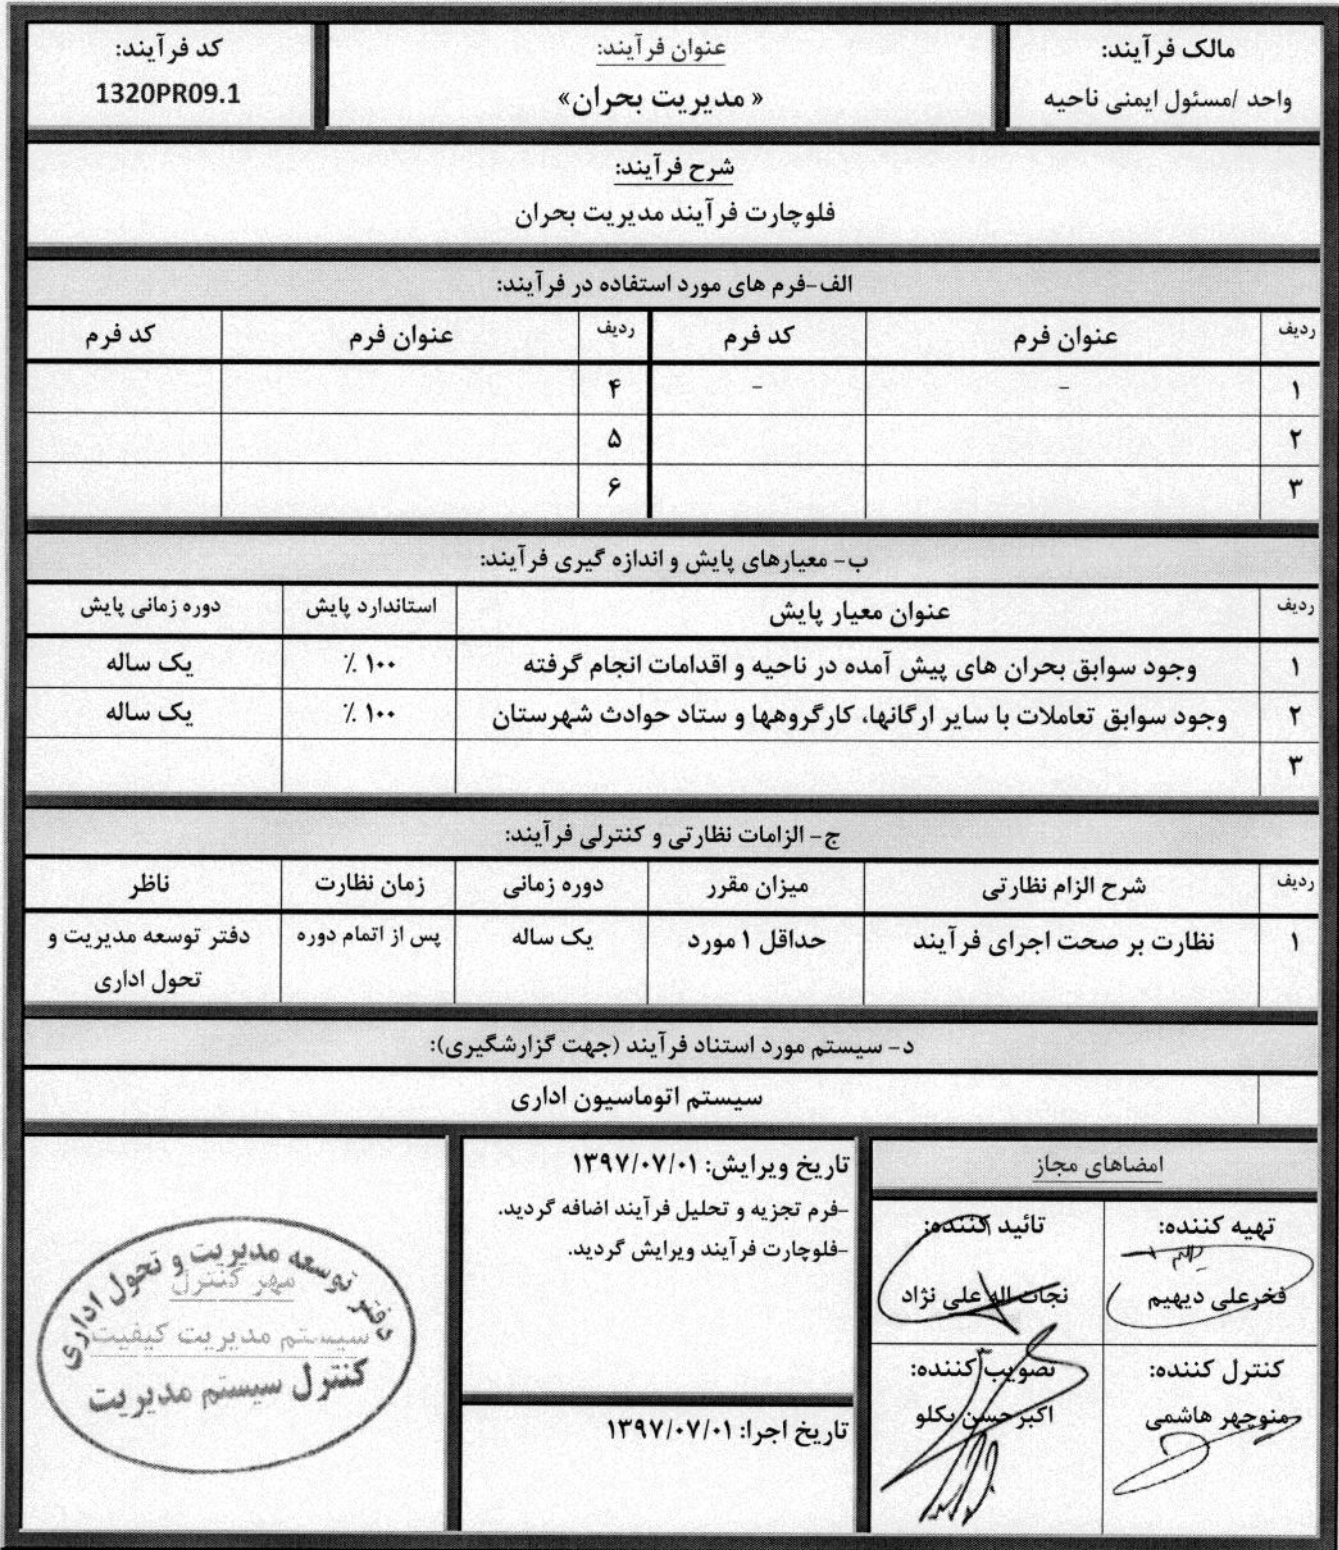 مالک فرآیند:
واحد /مسئول ایمنی ناحیه
عنوان فرآیند:
« مدیریت بحران»
کد فرآیند:
1320PR09.1
شرح فرآیند:
فلوچارت فرآیند مدیریت بحران
الف-فرم های مورد استفاده در فرآیند:
ردیف عنوان فرم کد فرم ردیف عنوان فرم کد فرم
۱ - - ۴
۲ ۵
۳ ۶
ب- معیارهای پایش و اندازه گیری فرآیند:
ردیف عنوان معیار پایش استاندارد پایش دوره زمانی پایش
۱ وجود سوابق بحران های پیش آمده در ناحیه و اقدامات انجام گرفته ۱۰۰ ٪ یک ساله
۲ وجود سوابق تعاملات با سایر ارگانها، کارگروهها و ستاد حوادث شهرستان ۱۰۰ ٪ یک ساله
۳
ج- الزامات نظارتی و کنترلی فرآیند:
ردیف شرح الزام نظارتی میزان مقرر دوره زمانی زمان نظارت ناظر
۱ نظارت بر صحت اجرای فرآیند حداقل ۱ مورد یک ساله پس از اتمام دوره دفتر توسعه مدیریت و
تحول اداری
د- سیستم مورد استناد فرآیند (جهت گزارشگیری):
سیستم اتوماسیون اداری
امضاهای مجاز
تهیه کننده:
فخرعلی دیهیم
تائید کننده:
نجات اله علی نژاد
کنترل کننده:
منوچهر هاشمی
تصویب کننده:
اکبر حسن بکلو
تاریخ ویرایش: ۱۳۹۷/۰۷/۰۱
-فرم تجزیه و تحلیل فرآیند اضافه گردید.
-فلوچارت فرآیند ویرایش گردید.
تاریخ اجرا: ۱۳۹۷/۰۷/۰۱
دفتر توسعه مدیریت و تحول اداری
مهر کنترل
سیستم مدیریت کیفیت
کنترل سیستم مدیریت